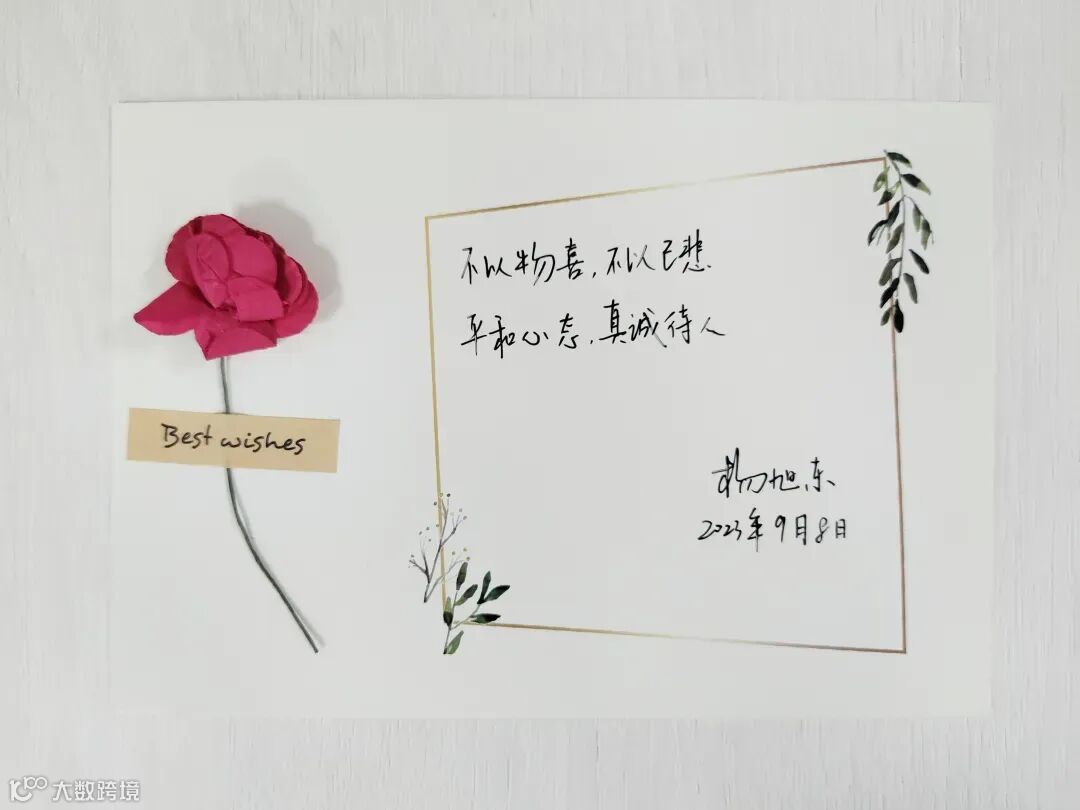 Best wishes
不以物喜，不以己悲
平和心态，真诚待人
杨旭东
2023年9月8日
大数跨境